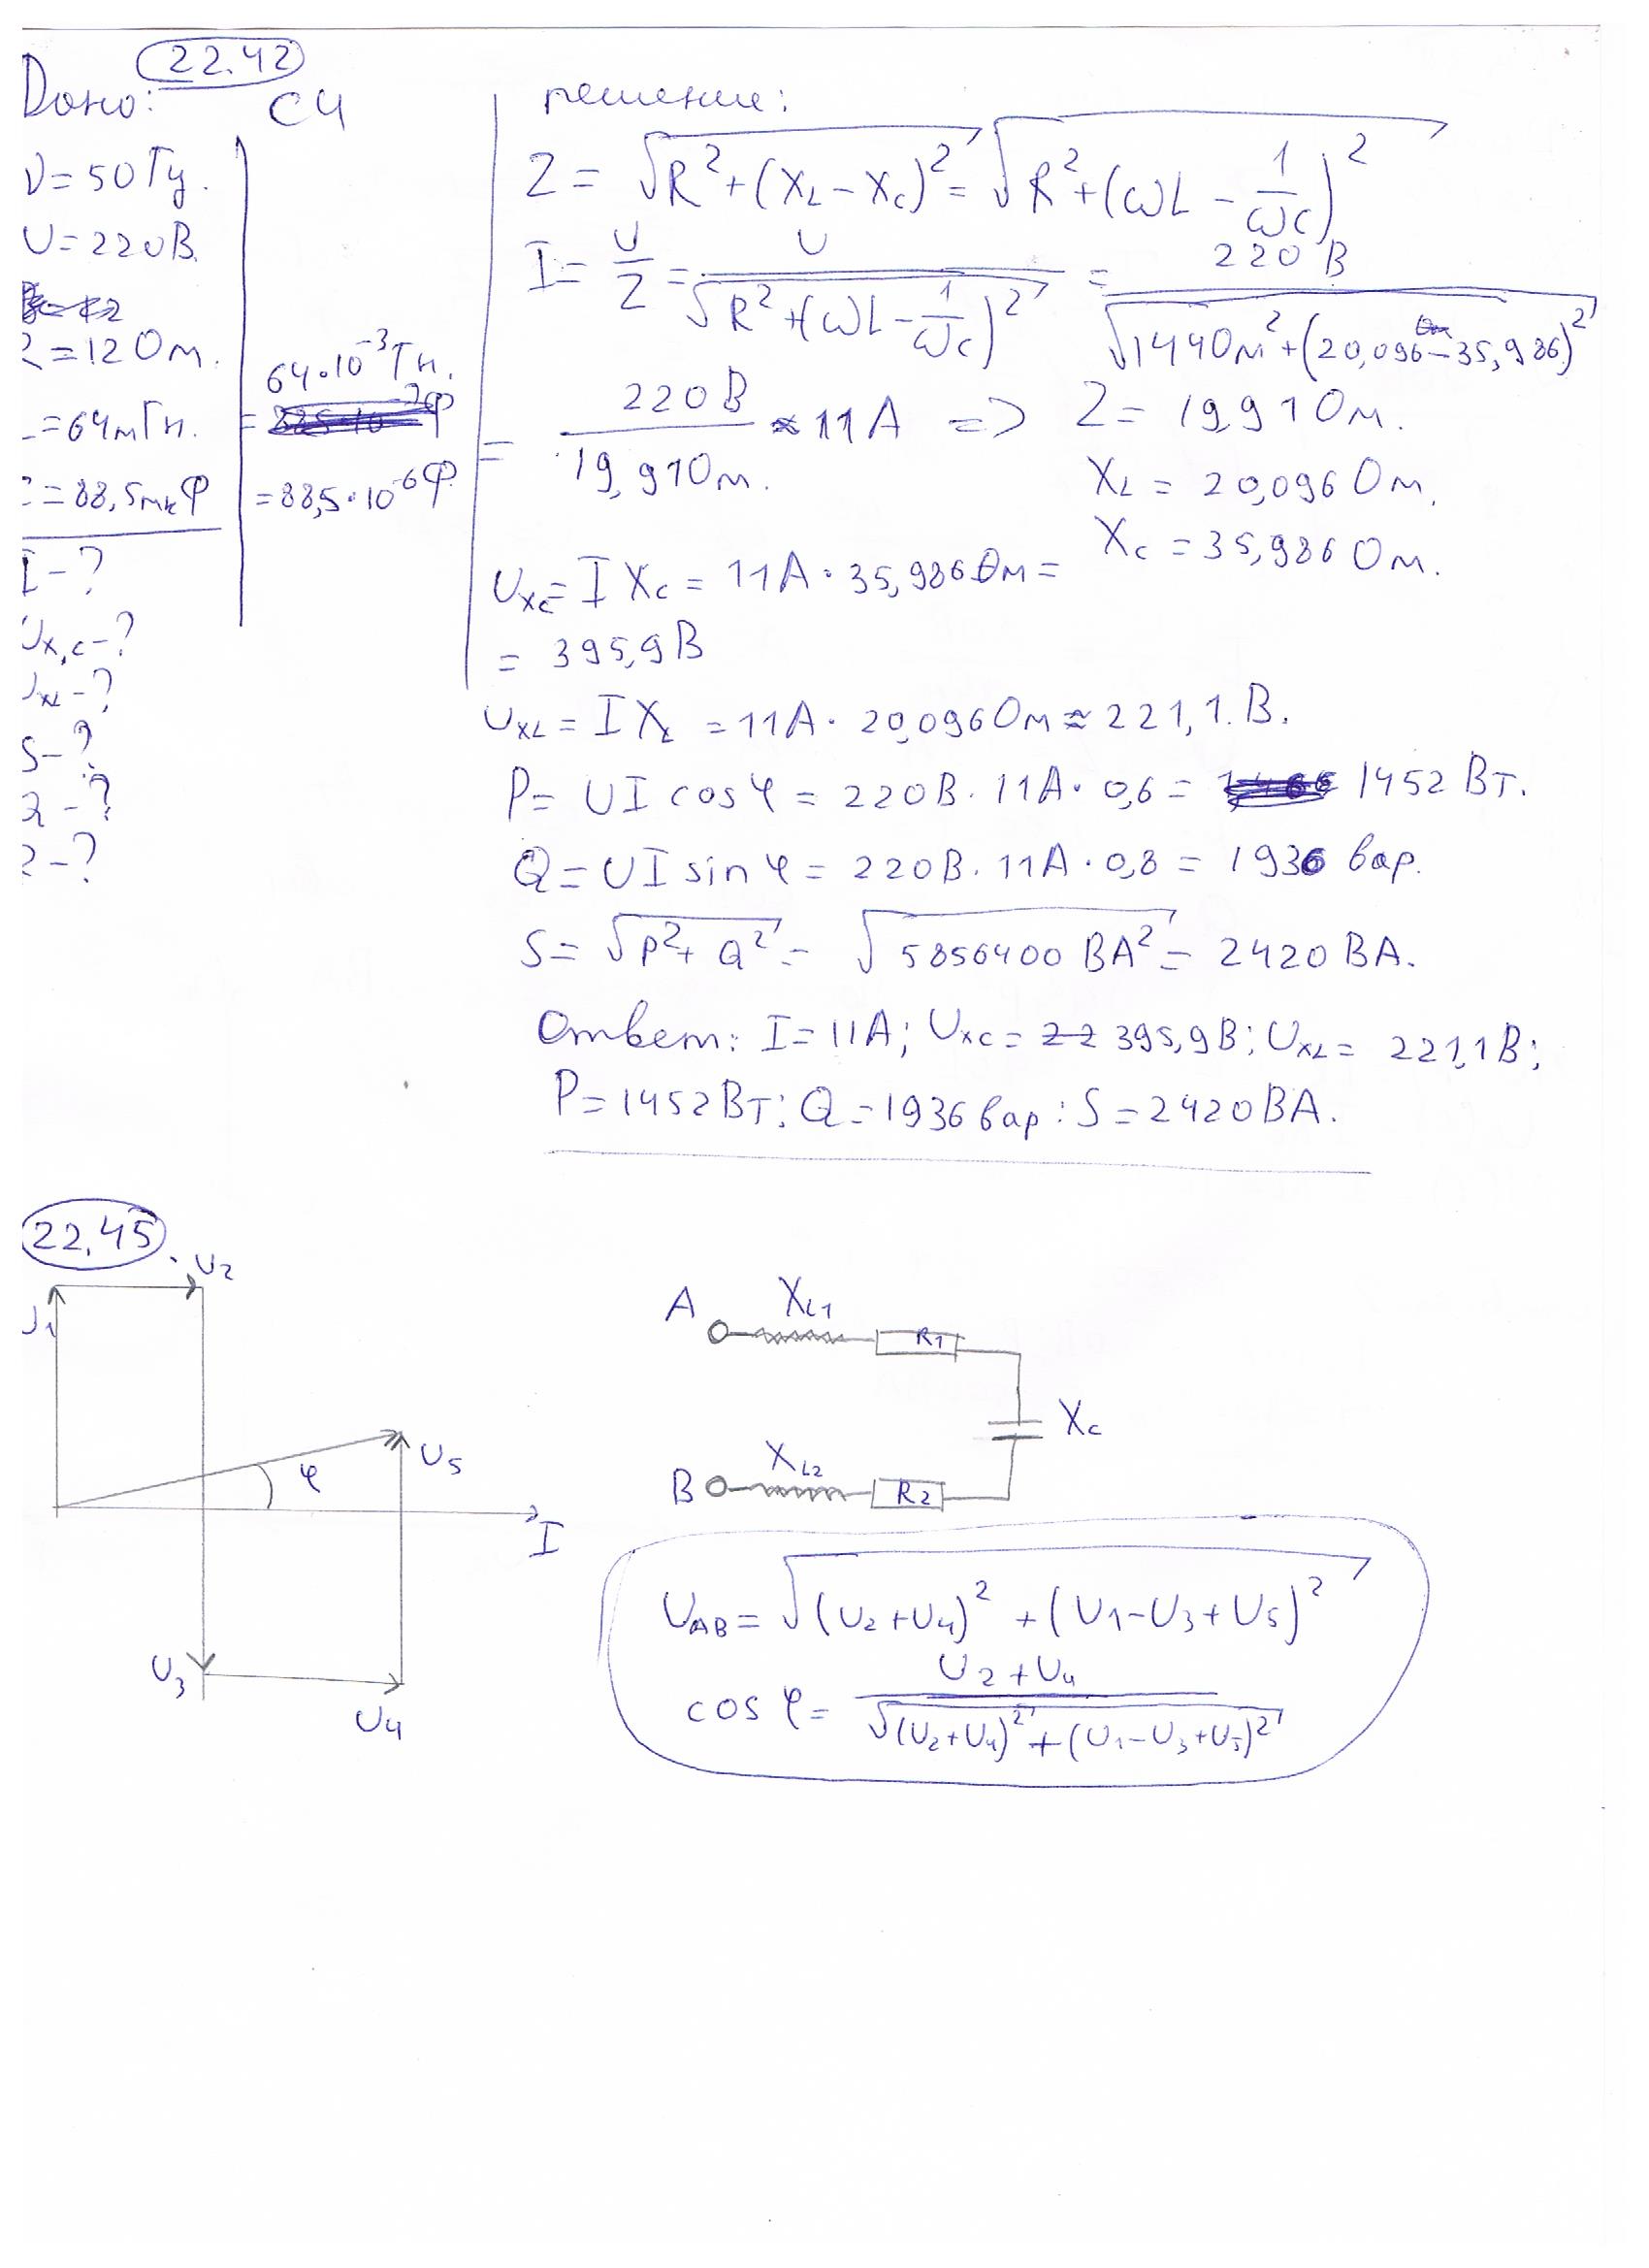 22.42
Дано: СИ
ν = 50 Гц.
U = 220 В.
R = 12 Ом.
L = 64 мГн. = 64·10⁻³ Гн.
C = 88,5 мкФ = 88,5·10⁻⁶ Ф
I - ?
Uх,с - ?
UxL - ?
S - ?
Q - ?
P - ?
решение:
Z = √(R² + (X_L - X_C)²) = √(R² + (ωL - 1/ωC)²)
I = U/Z = U/√(R² + (ωL - 1/ωC)²) = 220 В/√(144 Ом² + (20,096 - 35,986)²)
= 220 В/19,91 Ом. ≈ 11 А => Z = 19,91 Ом.
X_L = 20,096 Ом.
X_C = 35,986 Ом.
U_XC = I X_C = 11 А · 35,986 Ом =
= 395,9 В
U_XL = I X_L = 11 А · 20,096 Ом ≈ 221,1. В.
P = UI cos φ = 220 В · 11 А · 0,6 = 1452 Вт.
Q = UI sin φ = 220 В · 11 А · 0,8 = 1936 вар.
S = √(P² + Q²) = √(5856400 ВА²) = 2420 ВА.
Ответ: I = 11 А; U_XC = 395,9 В; U_XL = 221,1 В;
P = 1452 Вт; Q = 1936 вар : S = 2420 ВА.
22,45.
U₁
U₂
U₅
φ
I
U₃
U₄
A X_L1 R₁
X_C
B X_L2 R₂
U_AB = √((U₂ + U₄)² + (U₁ - U₃ + U₅)²)
cos φ = (U₂ + U₄)/√((U₂ + U₄)² + (U₁ - U₃ + U₅)²)